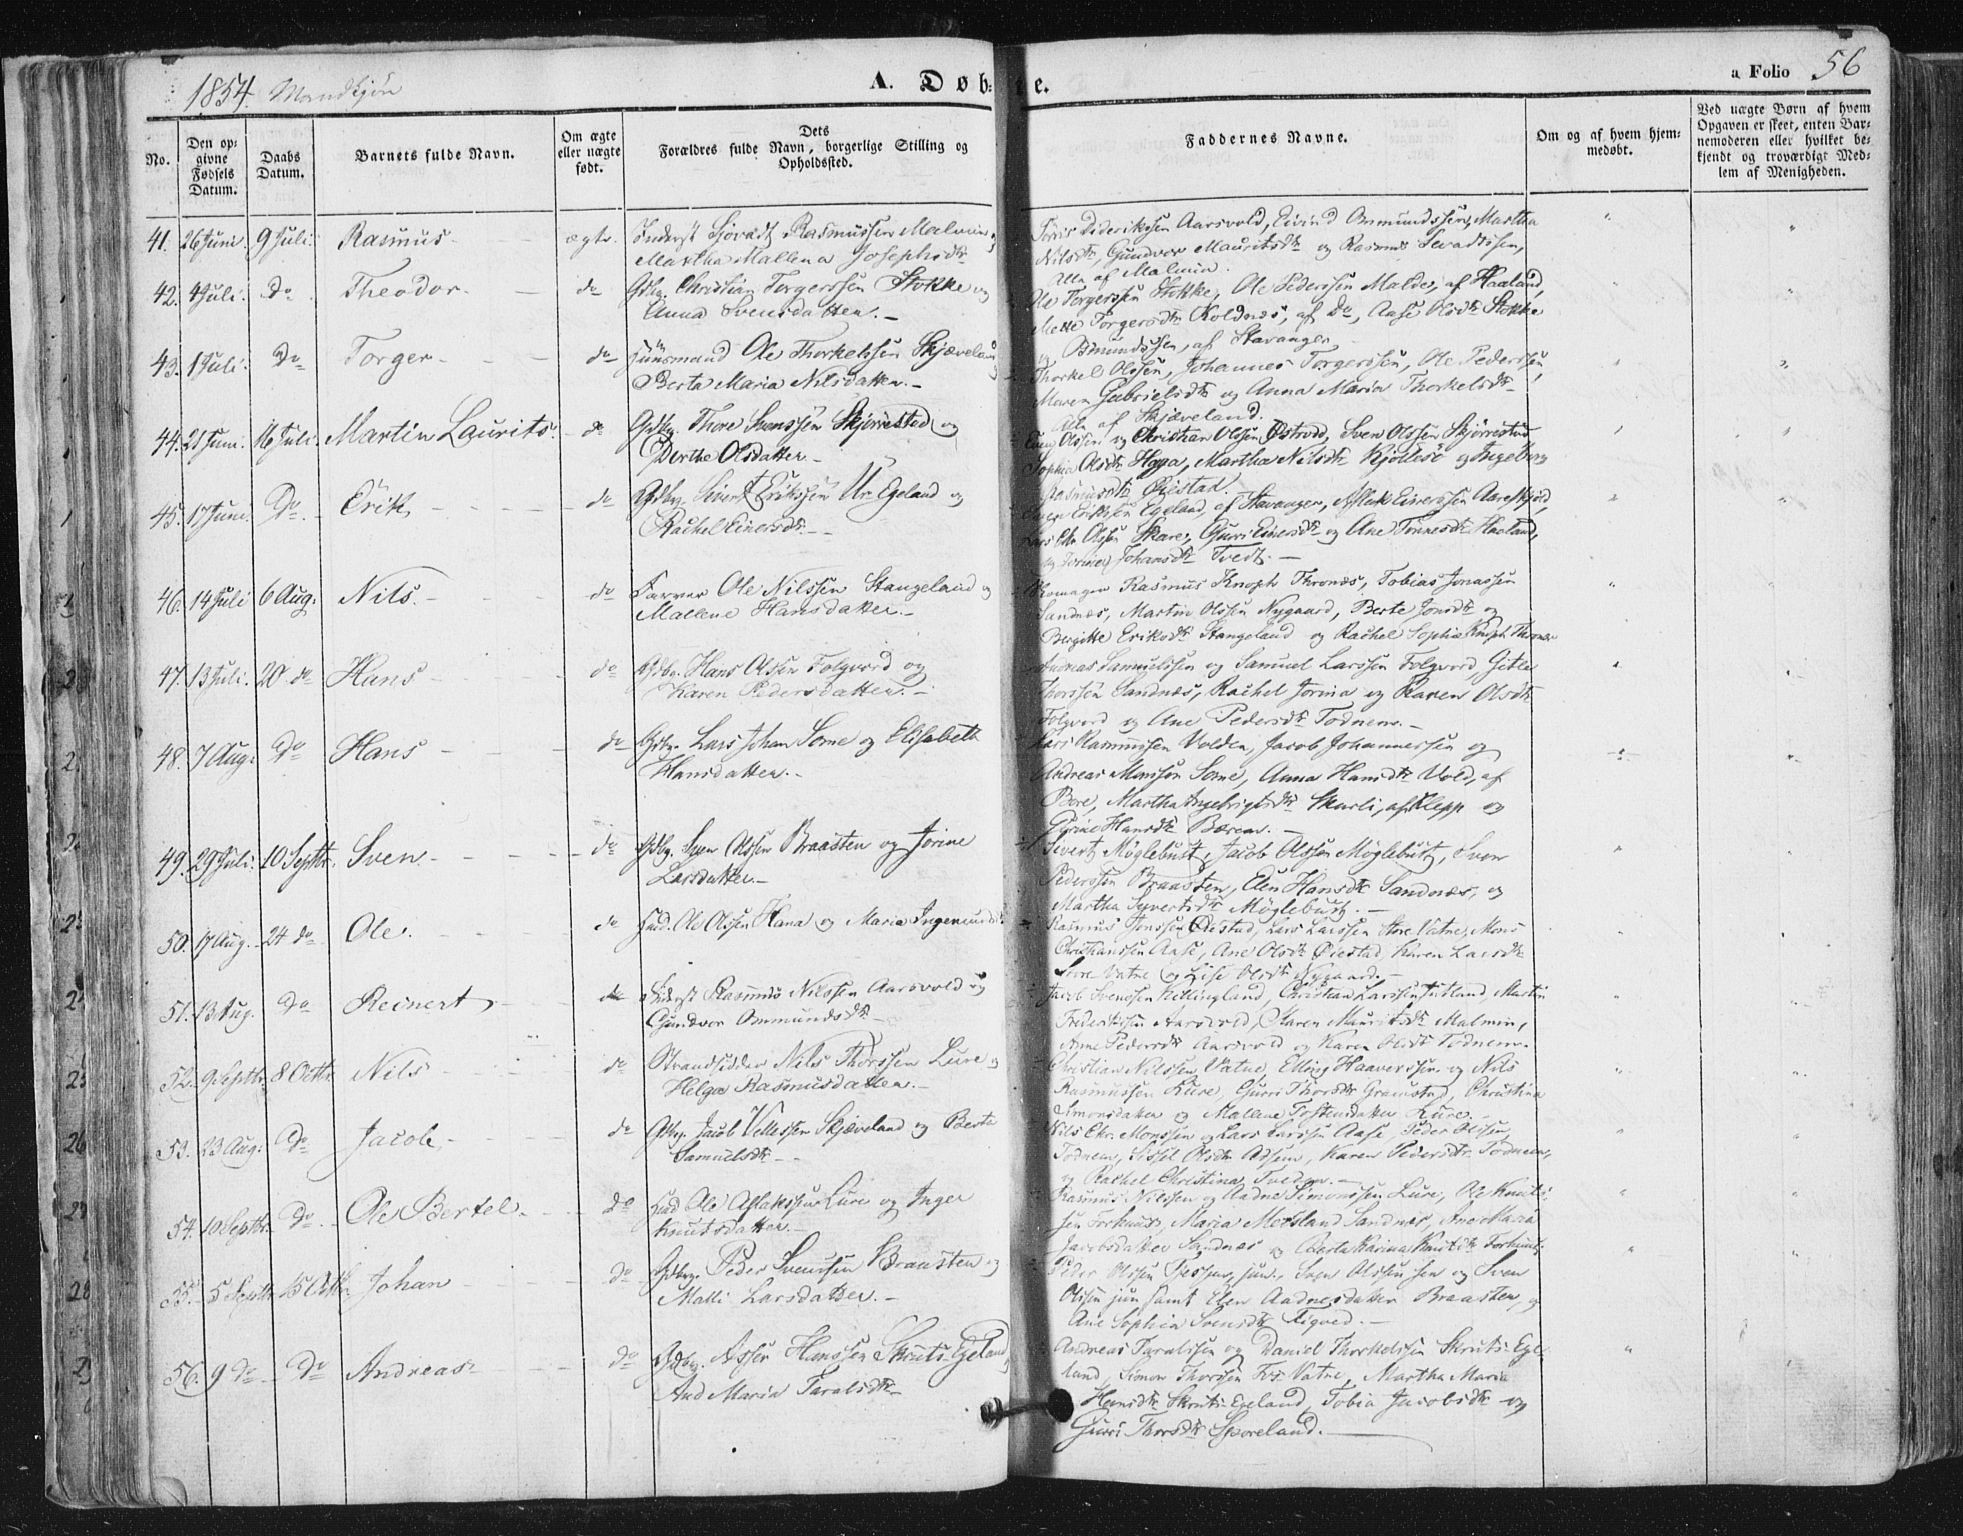 1854. Mandkjøn
A. Døbte.
a Folio 56
No.
Den opgivne Fødsels Datum.
Daabs Datum.
Barnets fulde Navn.
Om ægte eller uægte født.
Forældres fulde Navn, Dets borgerlige Stilling og Opholdssted.
Faddernes Navne.
Om og af hvem hjemmedøbt.
Ved uægte Børn af hvem Opgaven er skeet, enten Barnemoderen eller hvilket bekjendt og troværdigt Medlem af Menigheden.
41. 26 Juni. 9 Juli. Rasmus ægte. Inderst Sjovadt Rasmussen Malmin og
Martha Mallena Josephsdtr
Diderikssen Aarsvold, Eivind Ommundssen, Martha
Nilsdtr, Gundvor Mauritsdtr og Rasmus Sevadtssen,
Alle af Malmin.
42. 4 Juli. Do Theodor do Gdbg. Christian Torgerssen Stokke og
Anna Svensdatter.
Ole Torgerssen Stokke, Ole Pederssen Malde, af Haaland,
Mette Torgersdtr Koldnes, af Do, Aase Olsdtr Stokke
og Omundssen, af Stavanger
43. 1 Juli. Do Torger do Huusmand Ole Thorkelssen Skjæveland
Berta Maria Nilsdatter.
Thorkel Olssen, Johannes Torgerssen, Ole Pederssen,
Maren Gabrielsdtr og Anna Maria Thorkelsdtr
Alle af Skjæveland.
44. 21 Juni. 16 Juli. Martin Laurits. do Gdbg. Thore Svenssen Skjørrestad og
Dorthe Olsdatter
Olssen og Christian Olssen Østraad, Sven Olssen Skjørrestad
Sophia Olsdtr Hana, Martha Nilsdtr Kjøllesø og Ingeborg
Rasmusdtr Øiestad.
45. 17 Juni. Do Erik do Gdbg. Sivert Erikssen Ur-Egeland og
Rachel Einersdtr
Erikssen Egeland, af Stavanger, Aslak Einerssen Aareskjold,
Lars Chr. Olssen Skare, Gurri Einersdtr og Ane Tønnesdtr Haaland,
og Jorine Johansdtr Tvedt.
46. 14 Juli 6 Aug. Nils. do Farver Ole Nilssen Stangeland og
Mallene Hansdatter.
Skomager Rasmus Knoph Thronæs, Tobias Jonassen
Sandnæs, Martin Olssen Nygaard, Berte Jonsdtr og
Bergitte Eriksdtr Stangeland og Rachel Sophie Knoph Thronæs
47. 13 Juli. 20 do Hans do Gdbg. Hans Olssen Folgvord og
Karen Pedersdatter.
Andreas Samuelssen og Samuel Larssen Folgvord Gitle
Thorssen Sandnæs, Rachel Jorina og Karen Olsdtr
Folgvord og Ane Pedersdtr Todnem.
48. 7 Aug. Do Hans do Gdbg. Lars Johan Some og Elisabeth
Hansdatter.
Lars Rasmussen Volden, Jacob Johannessen og
Andreas Monssen Some, Anna Hansdtr Vold, af
Bore, Martha Ingebrigtsdtr Skarli, af Klepp og
Hansdtr Bærem.
49. 29 Juli. 10 Septbr. Sven do Gdbg. Sven Olssen Braasten og Jorine
Larsdatter.
Sivert Møglebust, Jacob Olssen Møglebust, Sven
Pederssen Braasten, Elen Hansdtr Sandnæs, og
Martha Syvertsdtr Møglebust.
50. 17 Aug. 24 do Ole. do Huud. Ole Olssen Hana og Maria Ingemundsdtr
Rasmus Jonssen Øiestad, Lars Larssen Store Vatne, Mons
Christianssen Aase, Ane Olsdtr Øiestad Karen Larsdtr
Store Vatne og Lise Olsdtr Nygaard.
51. 13 Aug. Do Reinert do Inderst Rasmus Nilssen Aarsvold og
Gundvor Ommundsdtr
Jacob Svendsen Kyllingland, Christian Larssen Jutland, Martin
Frederikssen Aarsvold, Karen Mauritsdtr Malmin,
Anne Pedersdtr Aarsvold og Karen Olsdtr Todnem.
52. 9 Septbr. 8 Octbr Nils do Strandsidder Nils Thorssen Lure og
Helga Rasmusdatter.
Christian Nilssen Vatne, Elling Haaverssen og Nils
Rasmussen Lure, Gurri Thorsdtr Gramstad, Christina
Simonsdatter og Mallene Torstensdatter Lure.
53. 23 Aug. Do Jacob do Gdbg. Jacob Villessen Skjæveland og Berta
Samuelsdtr
Nils Chr. Monssen og Lars Larssen Aase, Peder Olssen
Todnem, Sissel Olsdtr Adsem, Karen Pedersdtr. Todnem,
og Rachel Christina Tveden.
54. 10 Septbr. Do Ole Bertel do Huud Ole Aslakssen Lure og Inger
Knutsdatter.
Rasmus Nilssen og Aadne Simonssen Lure, Ole Knuts-
sen Forhuus, Maria Mossland Sandnæs, Ane Maria
Jacobsdatter Sandnæs og Berta Karina Knutsdtr Forhuus
55. 5 Septbr 15 Octbr. Johan do Gdbg. Peder Svenssen Braasten og
Malli Larsdatter.
Peder Olssen jun., Sven Olssen sen og Sven
Olssen jun samt Elen Aadnesdatter Braasten, og
Ane Sophia Svensdtr Rigved.
56. 9 do Do Andreas do Gdbg. Asser Hanssen Skruts-Egeland
And Maria Taralsdtr
Andreas Taralssen og Daniel Thorkelssen Skruts-Ege-
land, Simon Thorssen Fos-Vatne, Martha Maria
Hansdtr Skruts-Egeland, Tobia Jacobsdtr og
Gurri Thorsdtr Sporeland.